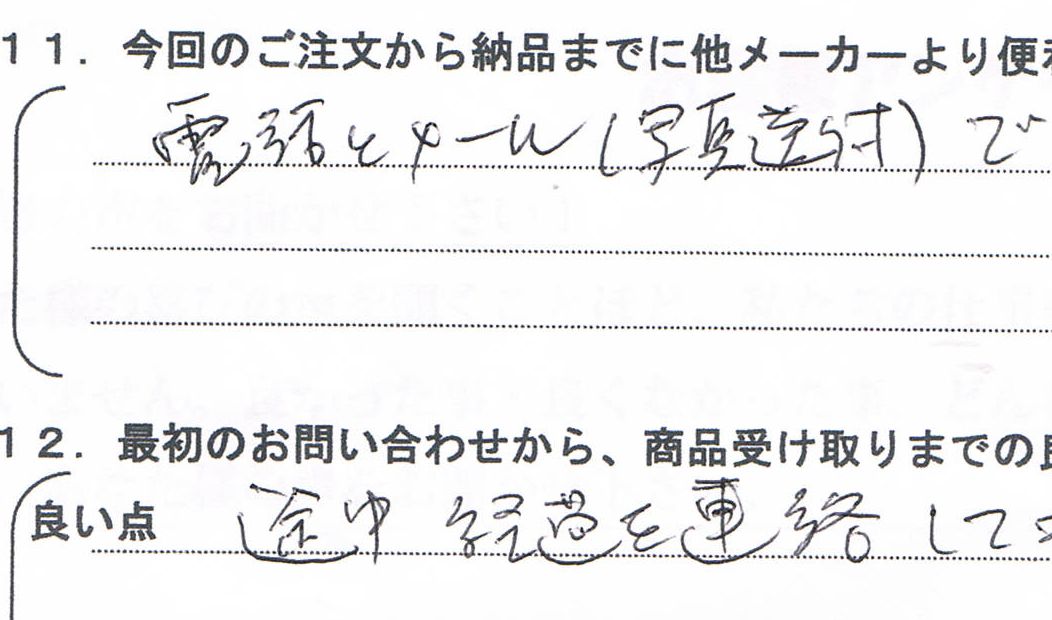 11. 今回のご注文から納品までに他メーカーより便
電話とメール(写真送付)で
12. 最初のお問い合わせから、商品受け取りまでの
良い点 途中経過を連絡して